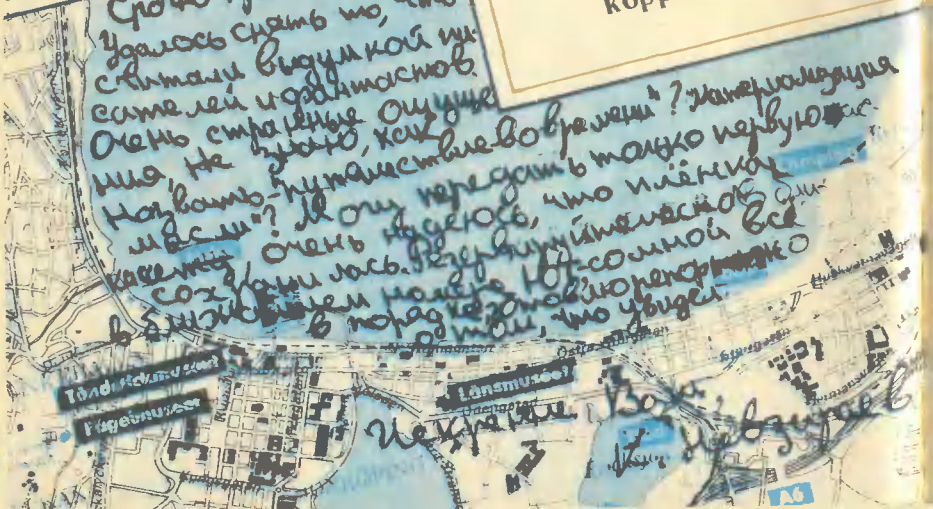 Срочно
корр
Удалось снять то, что
считали выдумкой пи-
сателей и фантастов.
Очень странные ощуще
ния, не знаю, как
назвать-„путешествие во времени"? Материализация
мысли"? Могу передать только первую
кассету, очень надеюсь, что плёнка
сохранилась. Резервируйте место
в ближайшем номере НФ-со мной всё
в порядке, готовлю репортаж о
том, что увидел.
Tändsticksmuseet
Fågelmuseet
Länsmuseet
Искренне Ваш
Невзираев
A6